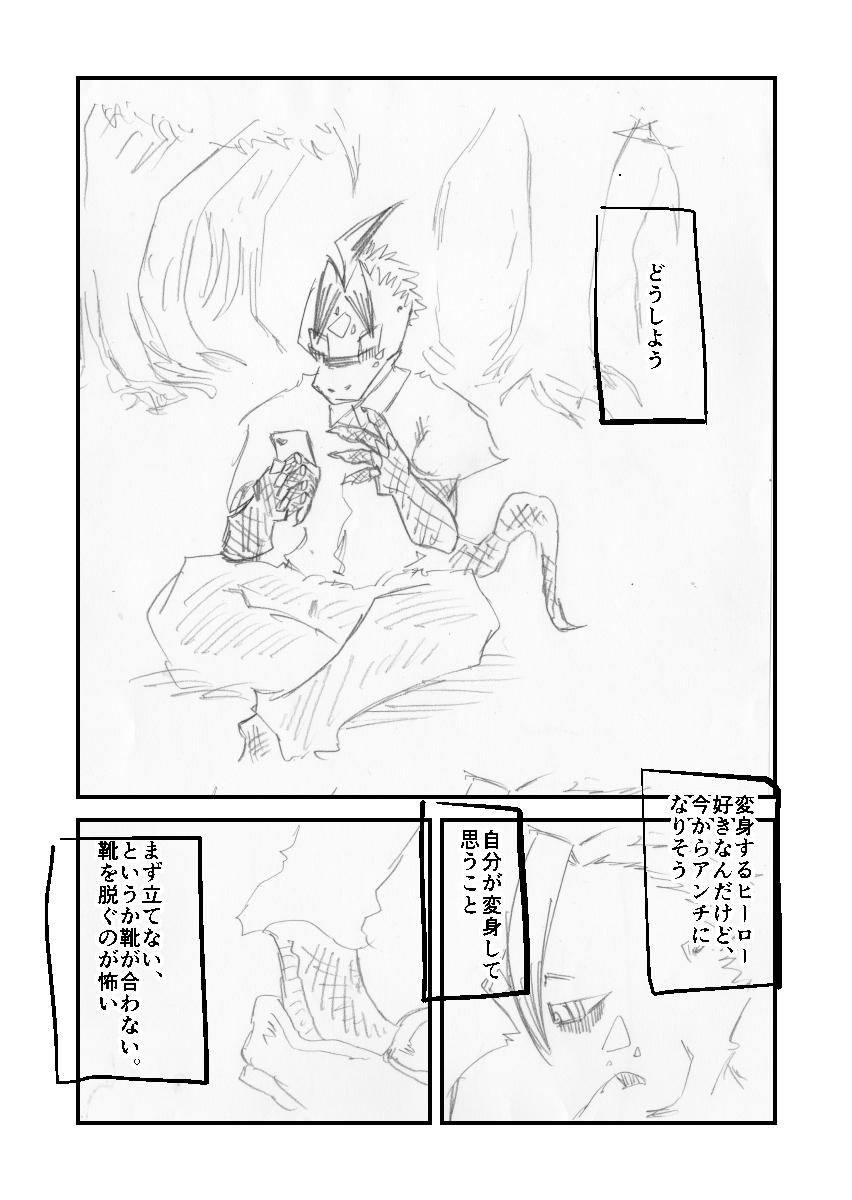 どうしよう
変身するヒーロー
好きなんだけど、
今からアンチに
なりそう
自分が変身して
思うこと
まず立てない、
というか靴が合わない。
靴を脱ぐのが怖い